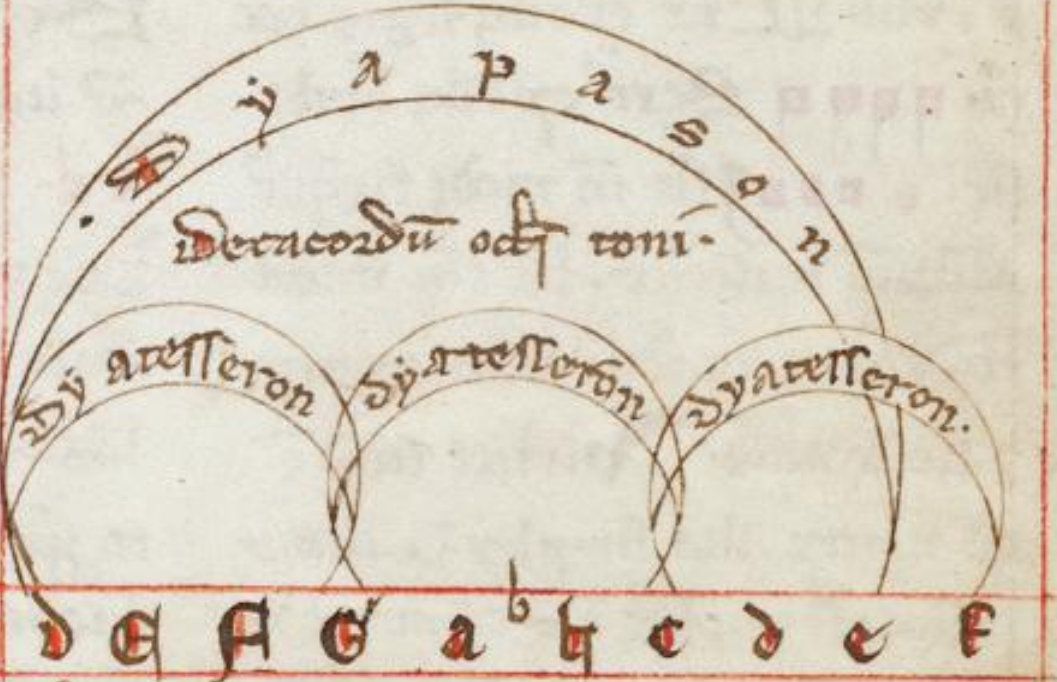 Dÿapason
Decacordū octī toni.
dÿatesseron dÿatesserōn dyatesseron.
d E F G a b h c d e f